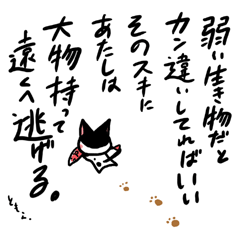 弱い生き物だと
カン違いしてればいい
そのスキに
あたしは
大物持って
遠くへ逃げる。